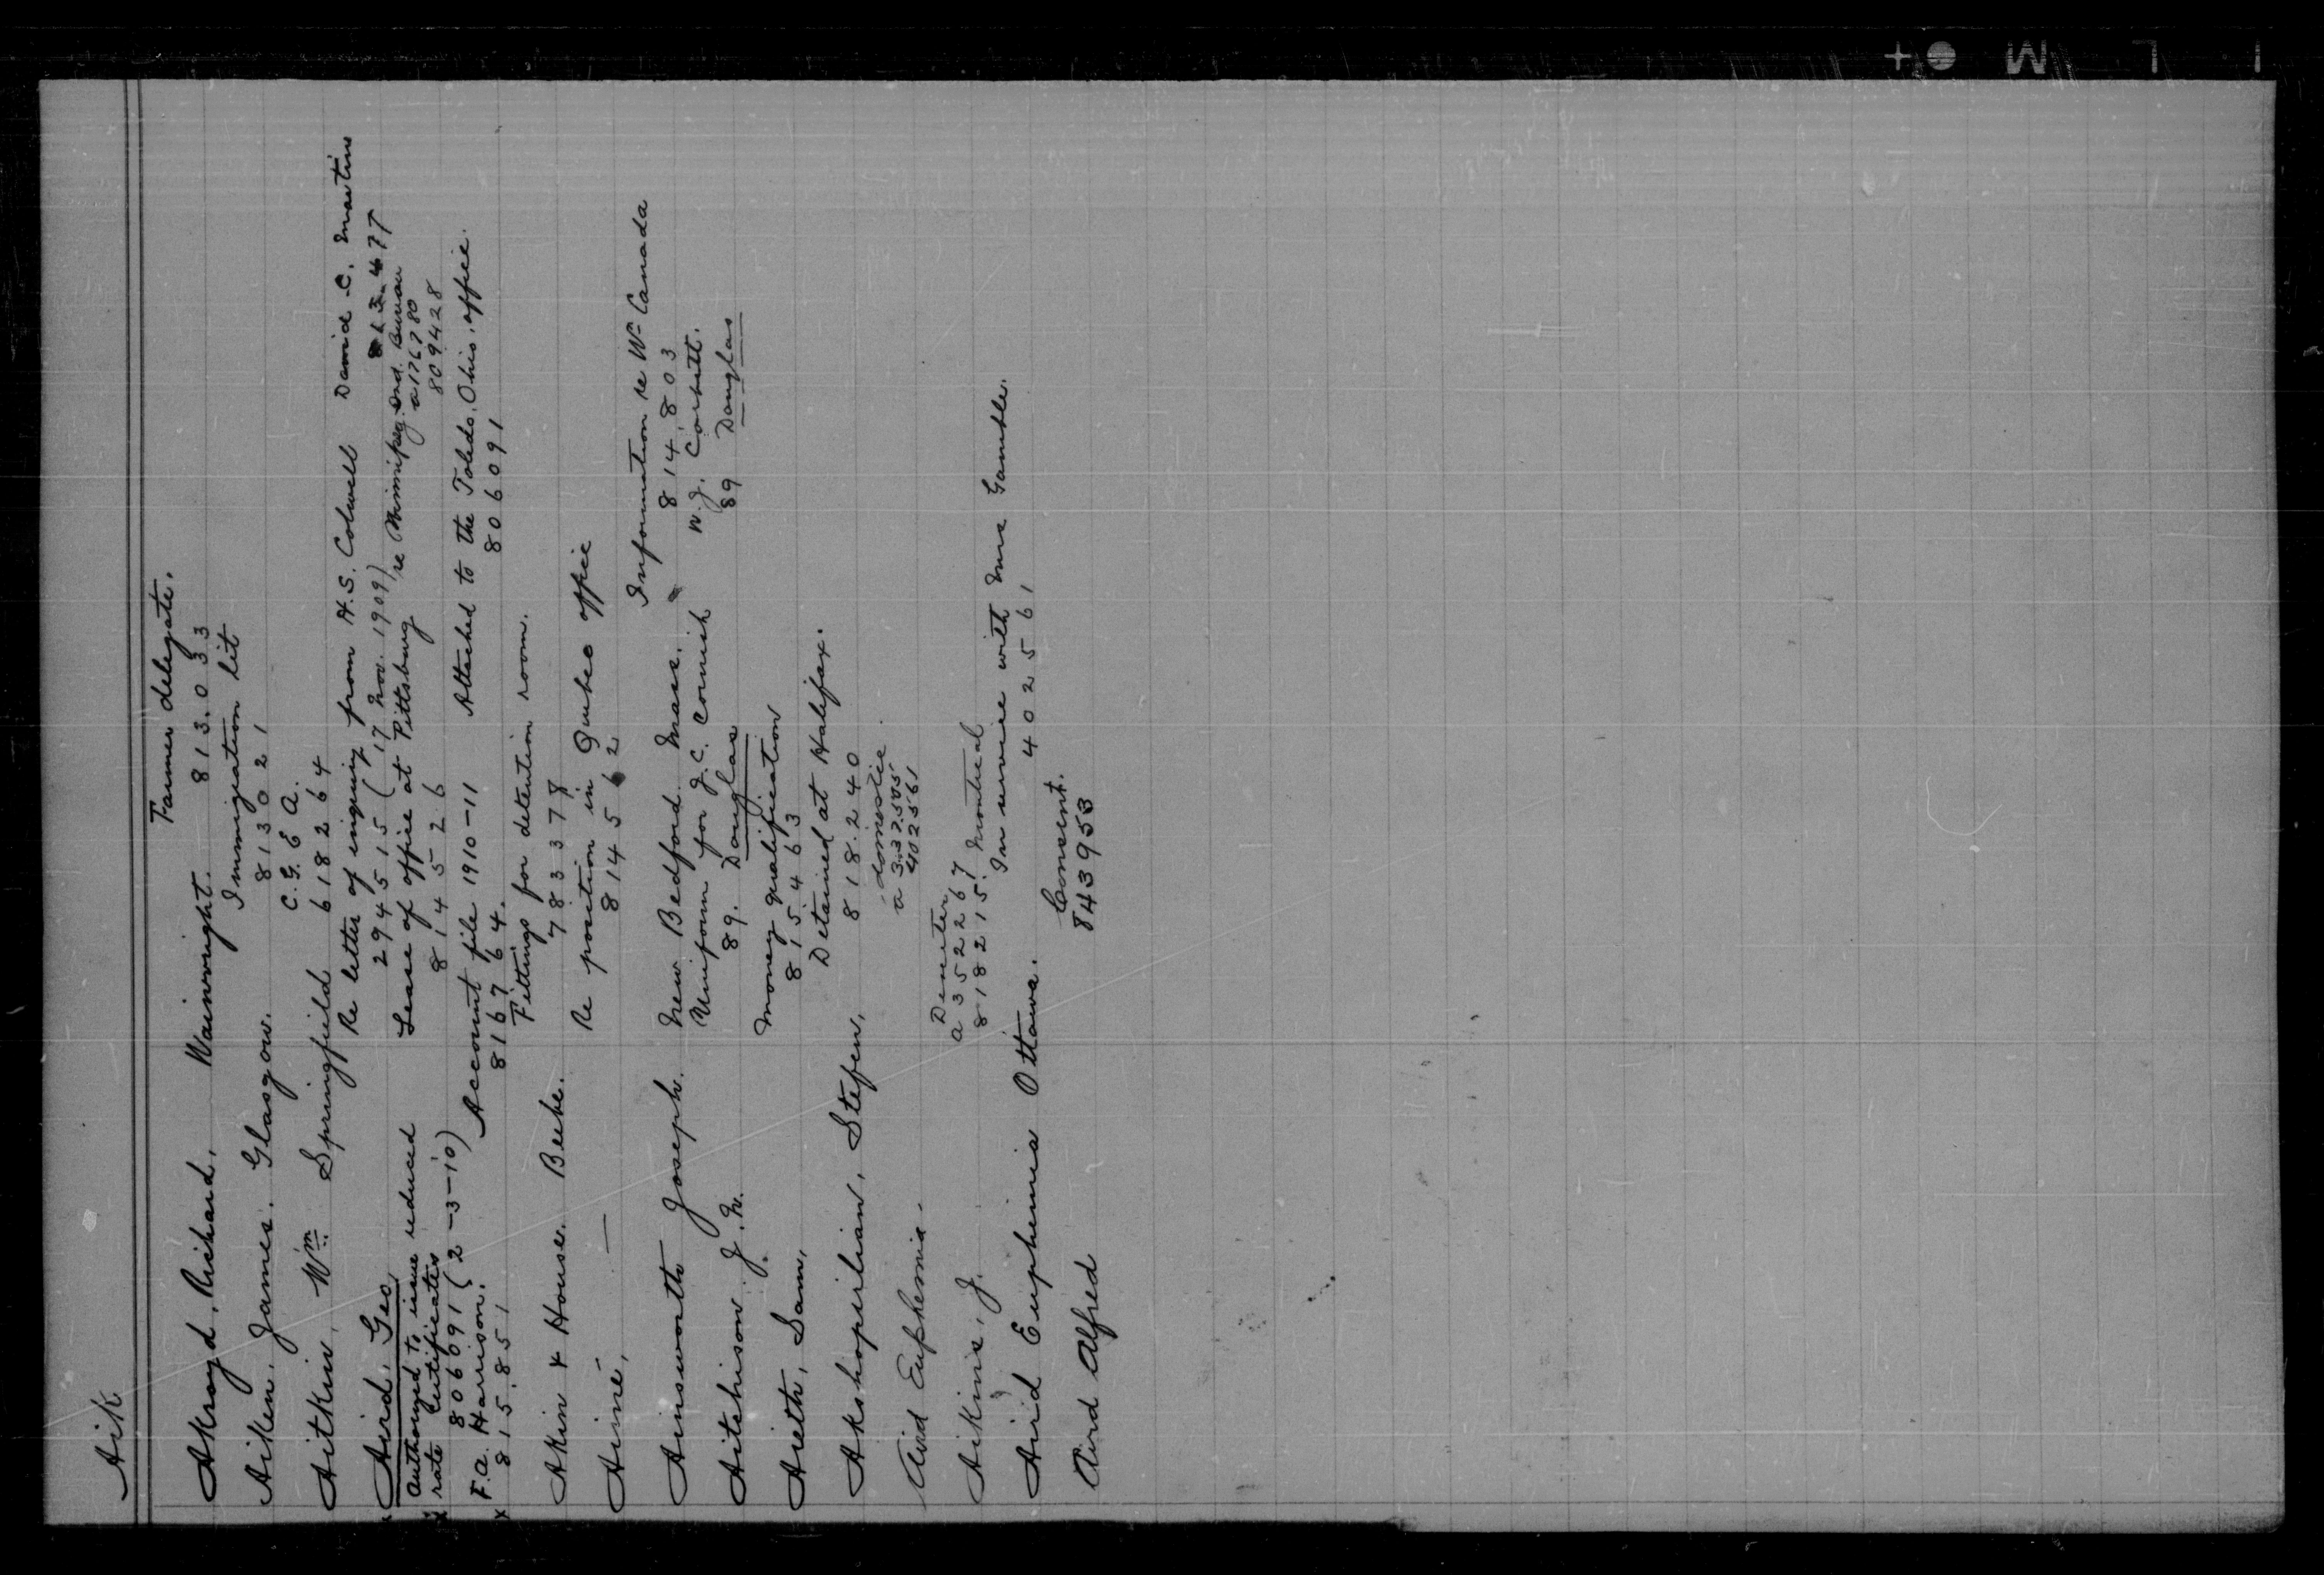 Aik
Farmer delegate.
Akroyd, Richard, Wainwright. 813.033
Immigration lit
Aiken, James. Glasgow. 813021
C. G. E A.
Aitkin, Wm Springfield 618264
Re letter of inquiry from H.S. Colwell David C. Martins
Aird, Geo 294515 (17 Nov. 1909)
Lease of office at Pittsburg re Winnipeg Ind. Bureau
a 176780
authorized to issue reduced 814526 809428
rate certificates
806091 (2-3-10) Account file 1910-11 Attached to the Toledo, Ohio, office.
F.A. Harrison. 816764. 806091
815.851 Fittings for detention room.
Akin & Houser. Beebe. 783378
Re position in Quebec office
Aimé, — 814562
Information re Wn Canada
Ainsworth Joseph. New Bedford. Mass. 814,803
Uniform for J.C. Cornish W.J. Corbett.
Aitchison J. W. 89. Douglas 89 Douglas
Money qualification
Aieth, Sam, 815463
Detained at Halifax.
Akshopirlian, Stefen, 818.240
domestic
Aird Euphemia- a 337.505
402561
Demeter
a 352267
Aikins, J. 818215. Montreal
In service with Mrs Gamble.
Aird Euphemia Ottawa. 402561
Consent.
Aird Alfred 843953